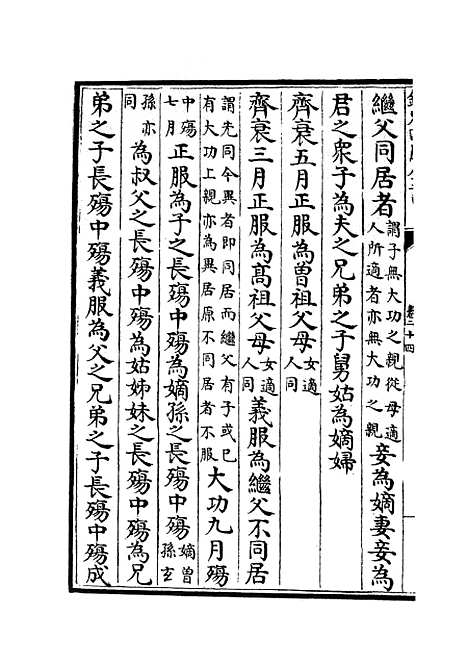 卷二十四
繼父同居者謂子無大功之親從母適人所適者亦無大功之親妾為嫡妻妾為
君之衆子為夫之兄弟之子舅姑為嫡婦
齊衰五月正服為曽祖父母女適人同
齊衰三月正服為髙祖父母女適人同義服為繼父不同居
謂先同今異者即同居而繼父有子或已有大功上親亦為異居原不同居者不服大功九月殤
中殤七月正服為子之長殤中殤為嫡孫之長殤中殤嫡曽孫玄
孫亦同為叔父之長殤中殤為姑姊妹之長殤中殤為兄
弟之子長殤中殤義服為父之兄弟之子長殤中殤成